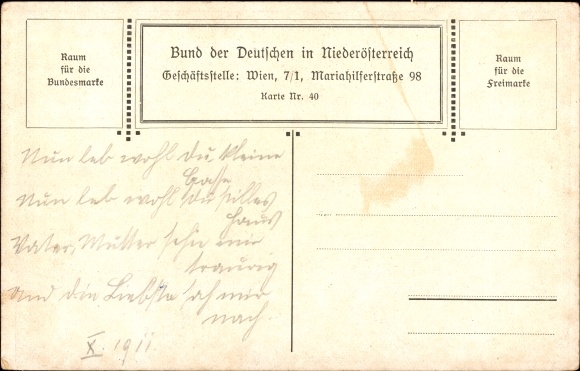 Raum
für die
Bundesmarke
Bund der Deutschen in Niederösterreich
Geschäftsstelle: Wien, 7/1, Mariahilferstraße 98
Karte Nr. 40
Raum
für die
Freimarke
Nun leb wohl du kleine
Gasse
Nun leb wohl du stilles
Haus
Vater, Mutter sehn mir
traurig
und die Liebste sah mir
nach.
X. 1911